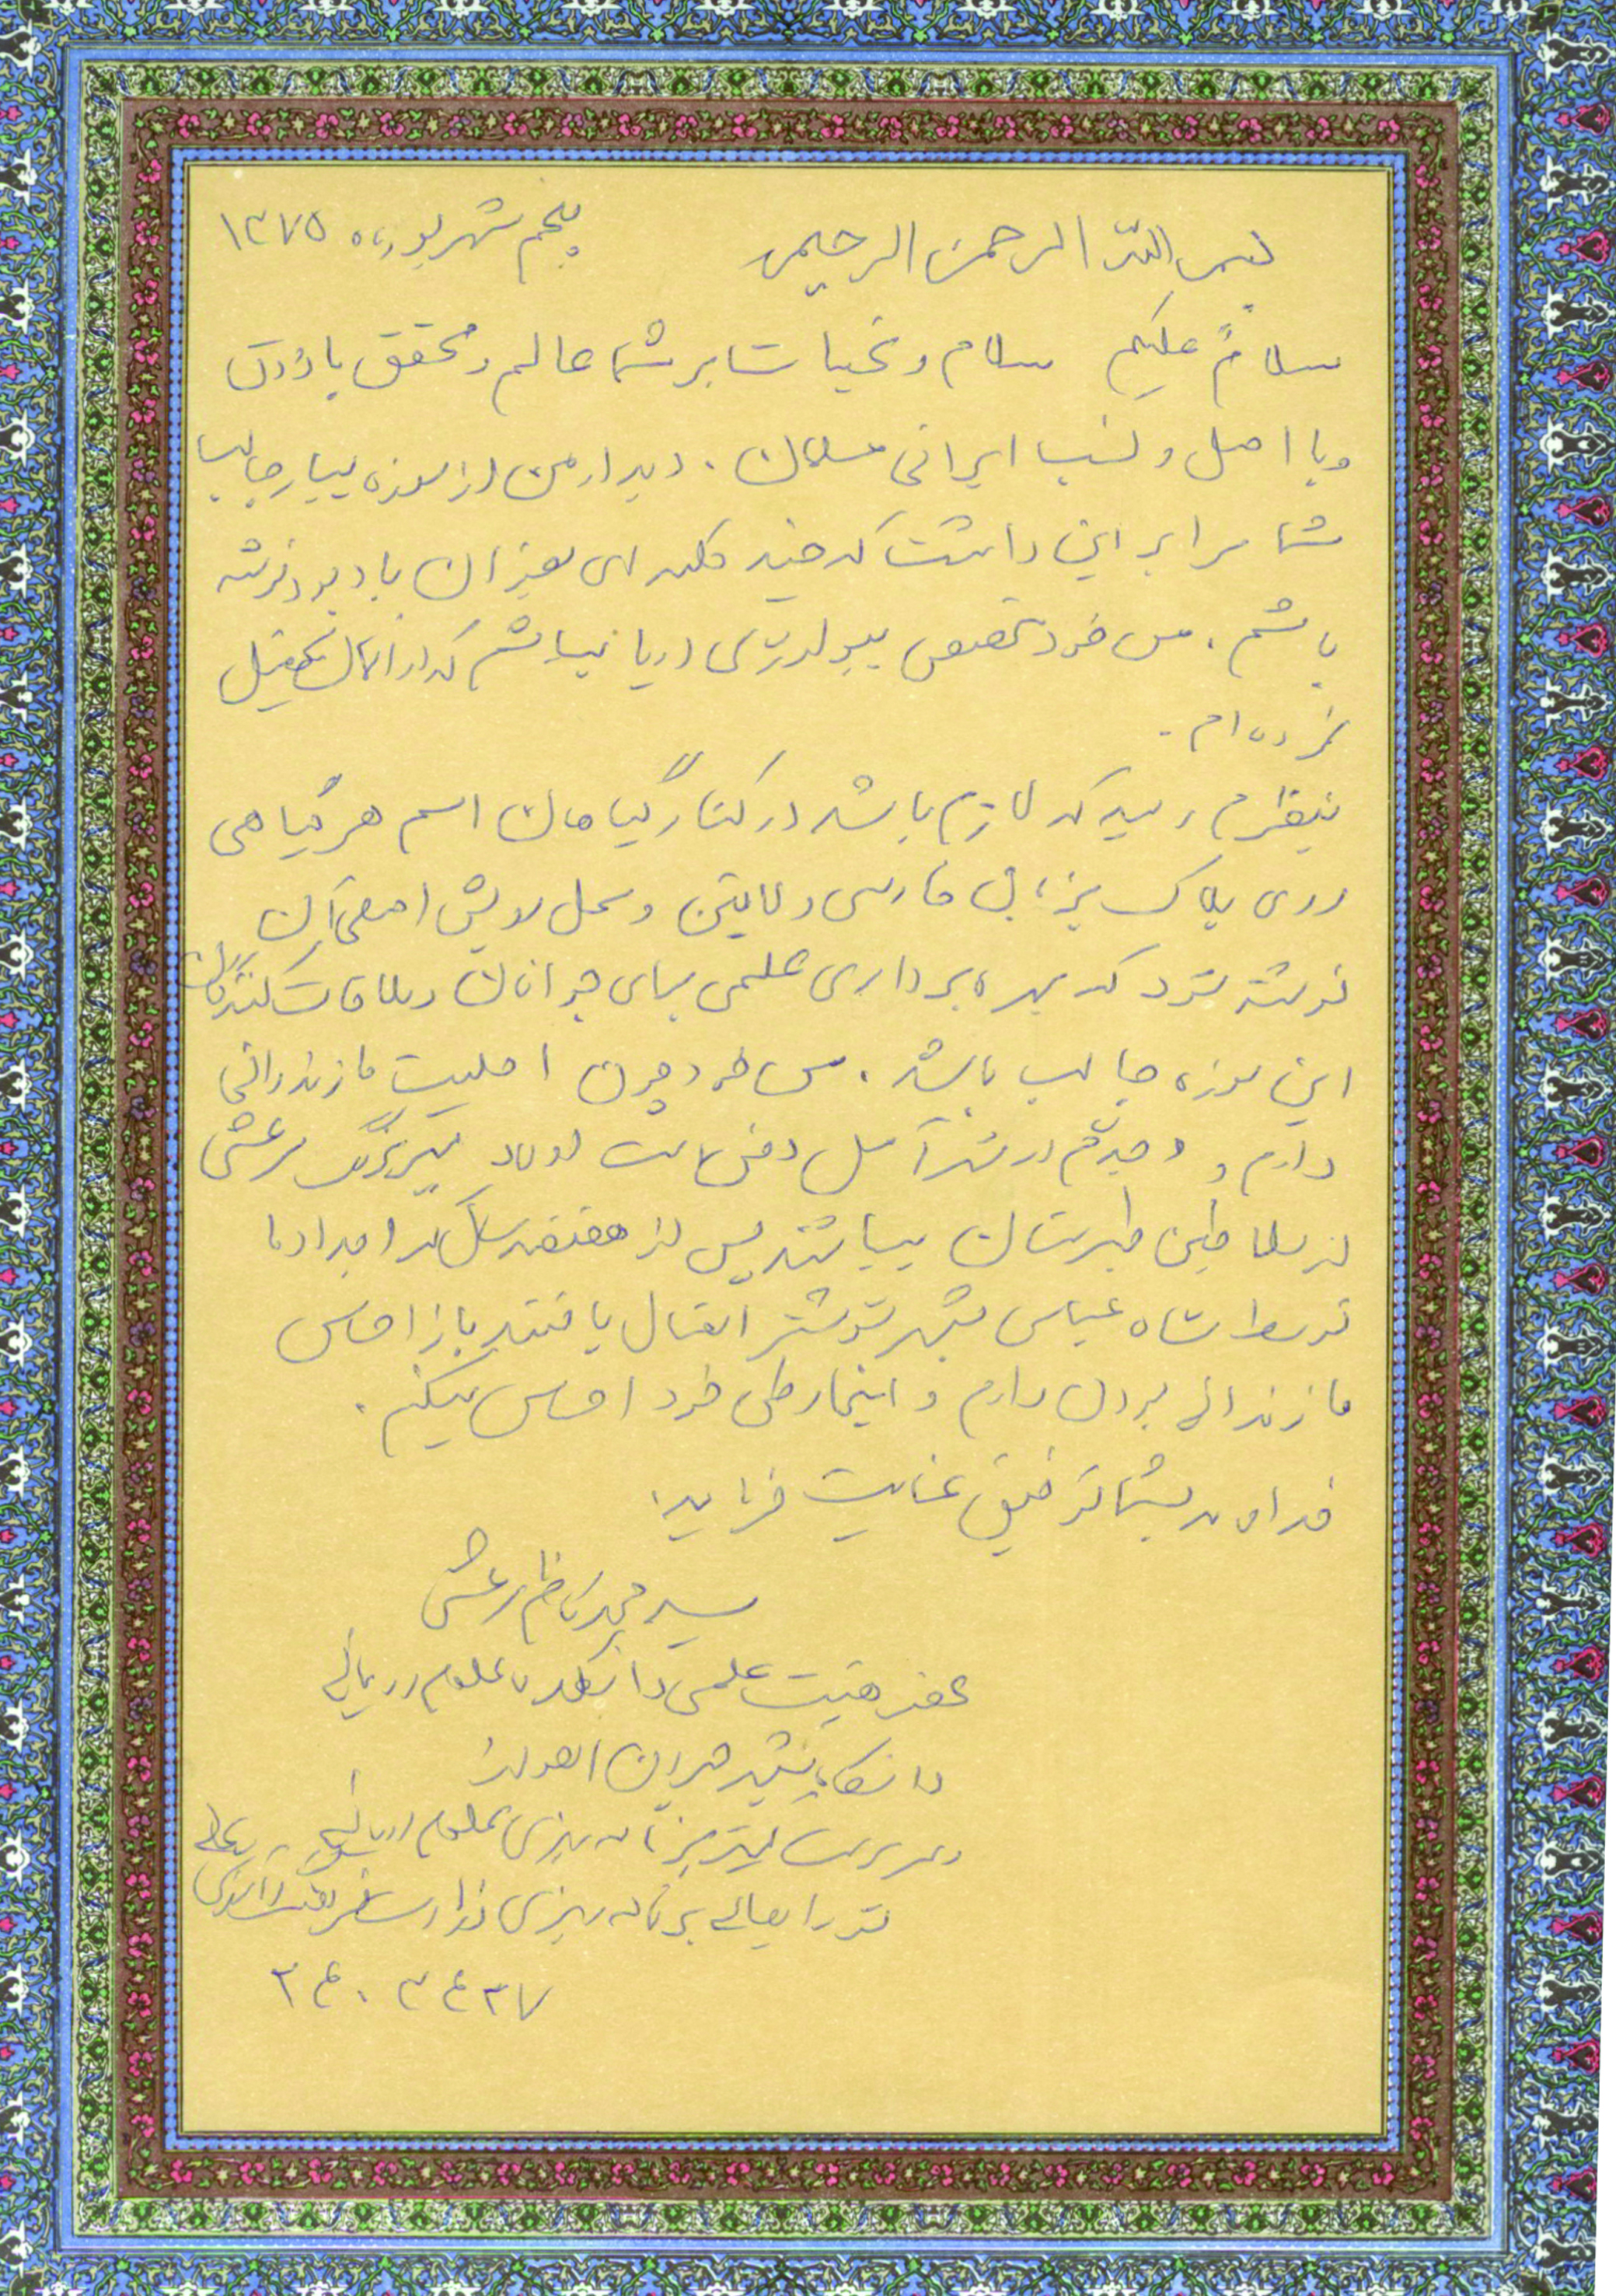 بسم الله الرحمن الرحیم پنجم شهریورماه ۱۳۷۵
سلامٌ علیکم سلام و تحیات بر شما عالم و محقق با ذوق
و با اصل و نسب ایرانی مسلمان. دیدار من از موزه بسیار جالب
شما مرا بر این داشت که چند کلمه‌ای بعنوان یادبود نوشته
باشم. من خود متخصص بیولوژی دریا میباشم که در آلمان تحصیل
نموده‌ام.
بنظرم رسید که لازم باشد در کنار گیاهان اسم هر گیاهی
روی پلاک بزبان فارسی و لاتین و محل رویش اصلی آن
نوشته شود که بهره‌برداری علمی برای جوانان و ملاقات کنندگان
این موزه جالب باشد. من خود چون اصلیت مازندرانی
دارم و جدم در شهر آمل دفن است اولاد میر بزرگ مرعشی
از سلاطین طبرستان میباشند پس از هفتصد سال که اجداد ما
توسط شاه عباس بشهر شوشتر انتقال یافتند باز احساس
مازندرانی بودن دارم و اینجا وطن خود احساس میکنم.
خداوند بشما توفیق عنایت فرماید.
سید محمد کاظم مرعشی
عضو هیئت علمی دانشکده علوم دریائی
دانشگاه شهید چمران اهواز
و سرپرست کمیته برنامه‌ریزی علوم دریائی
شورایعالی برنامه‌ریزی وزارت فرهنگ و آموزش عالی